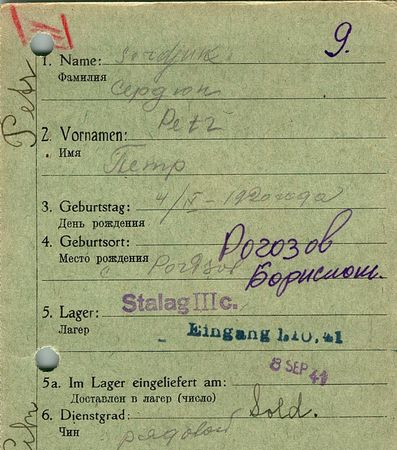 9.
1. Name: Serdjuk
Фамилия Сердюк
2. Vornamen: Petr
Имя Петр
3. Geburtstag: 4/IV – 1920 года
День рождения
4. Geburtsort: Рогозов
Место рождения с Рогозов Борисполь.
5. Lager: Stalag III c.
Лагер Eingang 1.10.41
8 SEP 41
5a. Im Lager eingeliefert am:
Доставлен в лагер (число)
6. Dienstgrad: Sold.
Чин рядовой
Petr